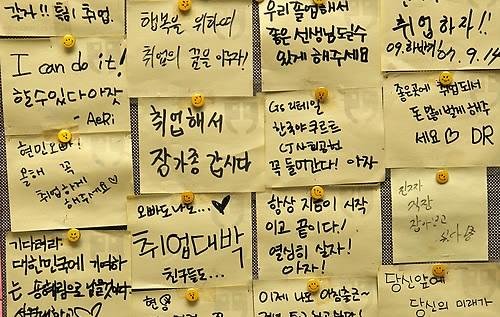 가자!! 특히 취업.
행복을 위하여
취업의 꿈을 이루자!
우리 졸업해서
좋은 선생님 될수
있게 해주세요
취업하자!!
09.하반기 09.9.14
I can do it!
할수있다아잣
- AeRi
취업해서
장가좀 갑시다
GS 리테일
한국야쿠르트
꼭 들어간다! 아자
좋은곳에 취업되서
돈 많이벌게 해주
세요♡ DR
현민오빠!
올해 꼭
취업하게
해주세요♡
오빠도나도...♥
취업대박
친구들도...
항상 지금이 시작
이고 끝이다!
열심히 살자!
아자!
진짜
직장
잡아보고
싶다!
기다려라.
대한민국에 기여하
는
현영
이제 나도
당신앞에
당신의 미래가